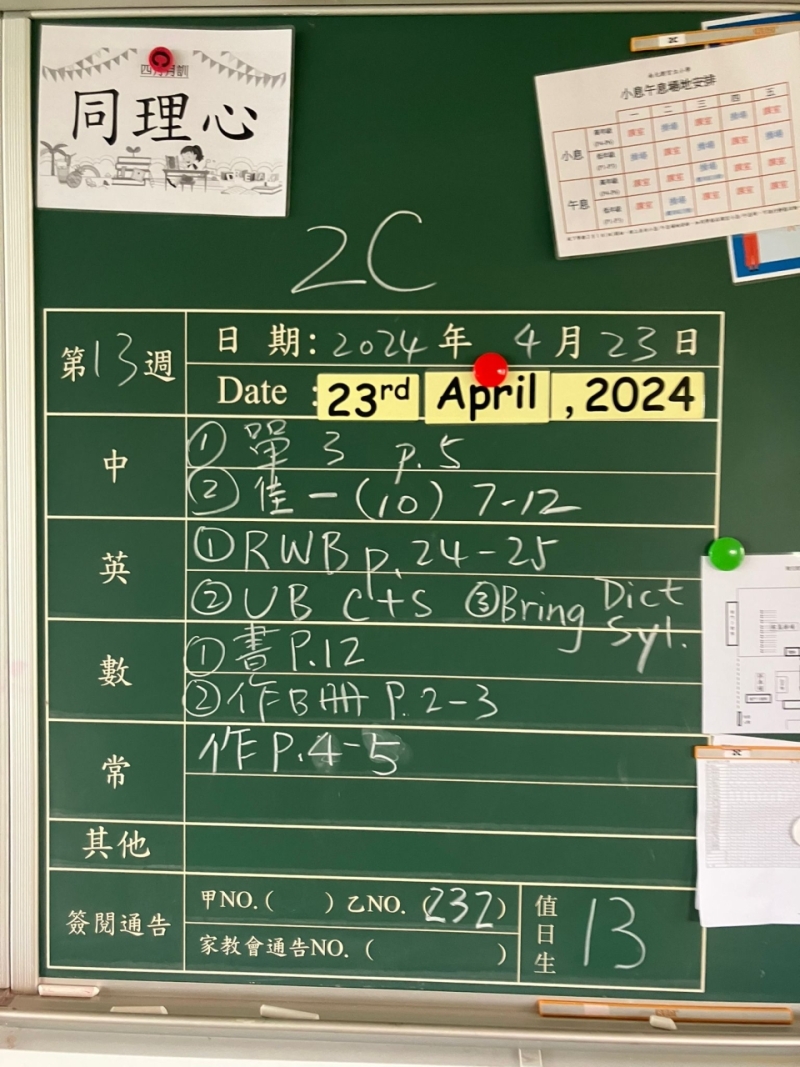 四月月訓
同理心
小息午息場地安排
一 二 三 四 五
小息
午息
2C
第13週
日 期: 2024 年 4 月 23 日
Date : 23rd April , 2024
中
① 單 3 p.5
② 佳一(10) 7-12
英
① RWB p.24-25
② UB C+S ③Bring Dict Syl.
數
① 書 P.12
② 作B冊 P.2-3
常
作 P.4-5
其他
簽閱通告
甲NO.( ) 乙NO.(232)
家教會通告NO.( )
值日生 13